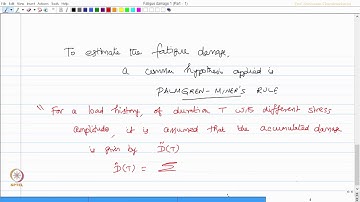 Fatigue damage 1 (Part - 1)
To estimate the fatigue damage,
a common hypothesis applied is
PALMGREN-MINER'S RULE
" For a load history, of duration T with different stress
amplitude, it is assumed that the accumulated damage
is given by D̄(T)
D̄(T) = Σ
NPTEL